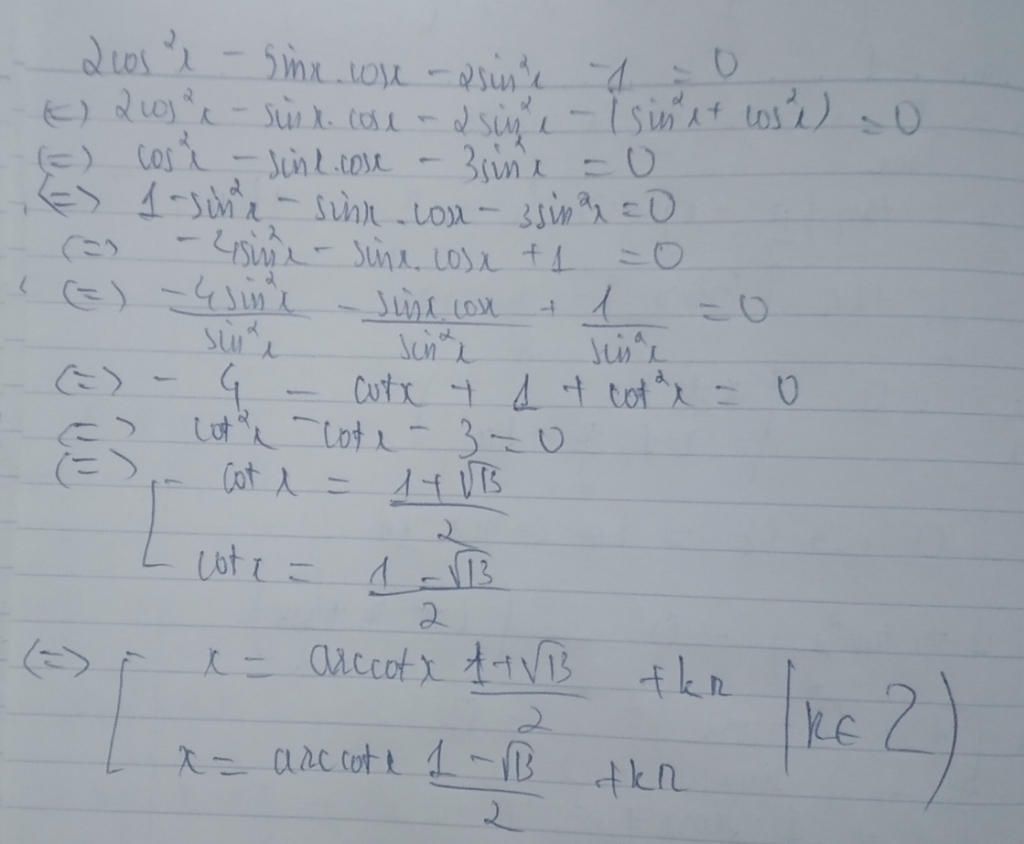 2cos²x - sinx.cosx - 2sin²x - 1 = 0
(=) 2cos²x - sinx.cosx - 2sin²x - (sin²x + cos²x) = 0
(=) cos²x - sinx.cosx - 3sin²x = 0
(=) 1 - sin²x - sinx.cosx - 3sin²x = 0
(=) -4sin²x - sinx.cosx + 1 = 0
(=) -4sin²x/sin²x - sinx.cosx/sin²x + 1/sin²x = 0
(=) - 4 - cotx + 1 + cot²x = 0
(=) cot²x - cotx - 3 = 0
(=) [ cotx = (1+√13)/2
cotx = (1-√13)/2
(=) [ x = arccotx (1+√13)/2 + kπ (k∈Z)
x = arccotx (1-√13)/2 + kπ